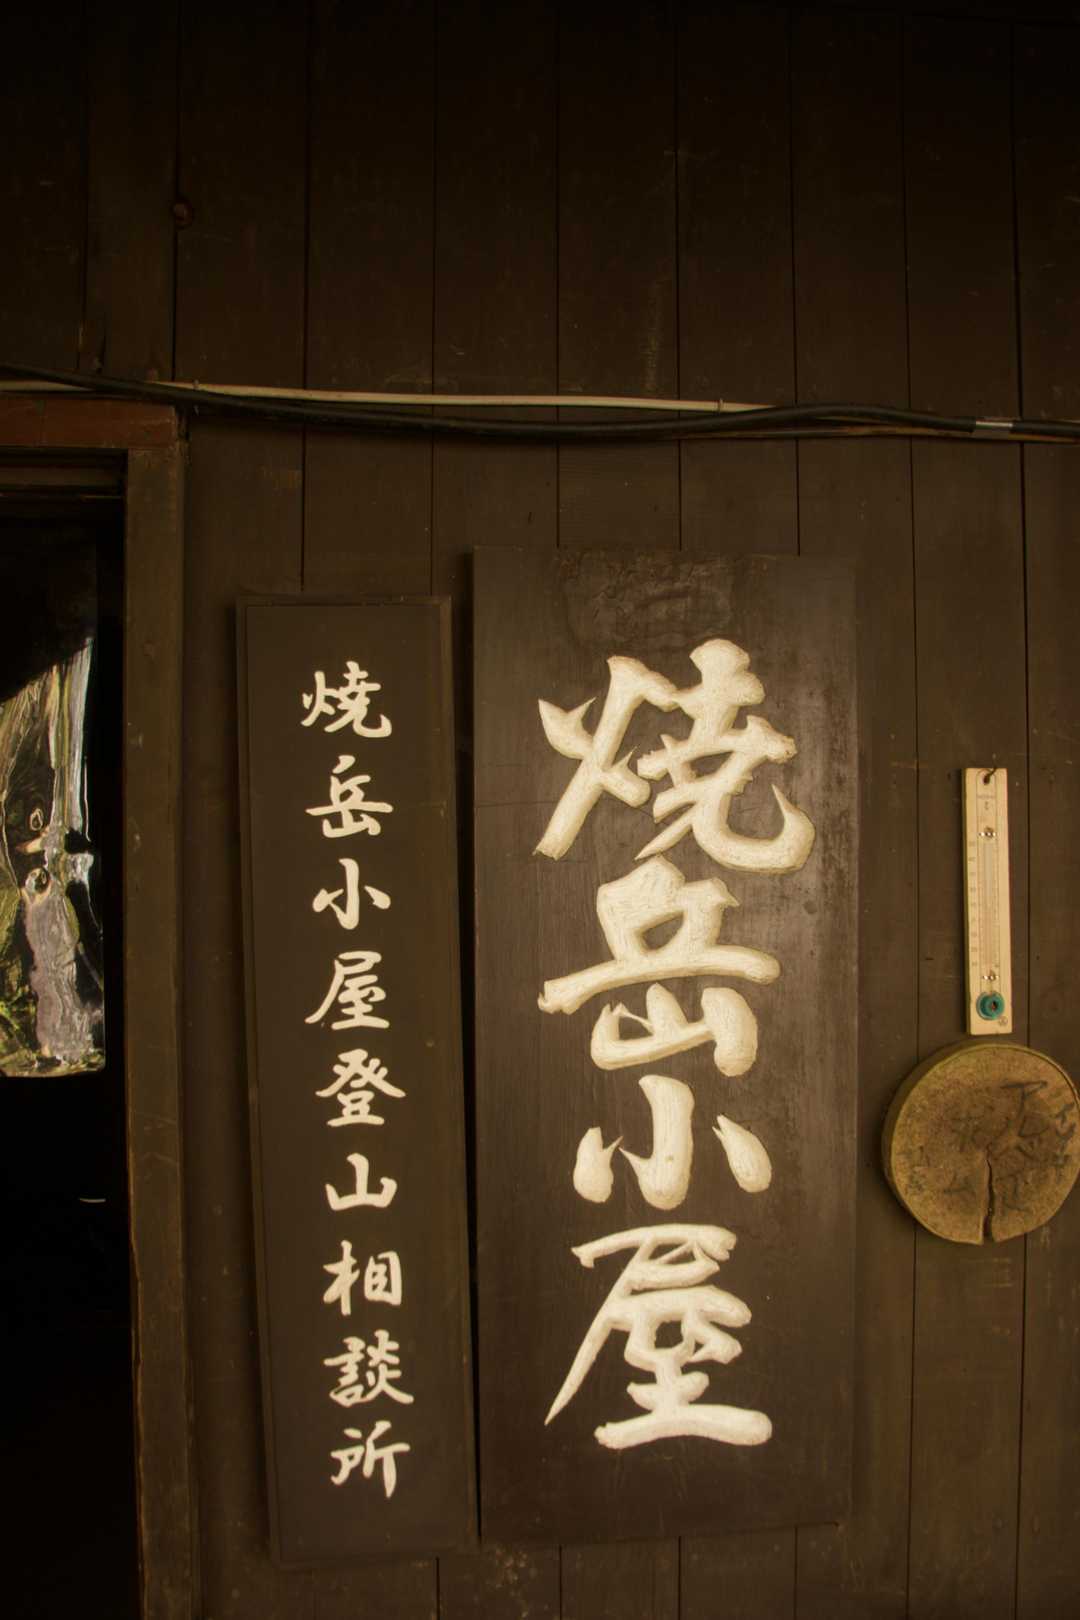 焼岳小屋
焼岳小屋登山相談所